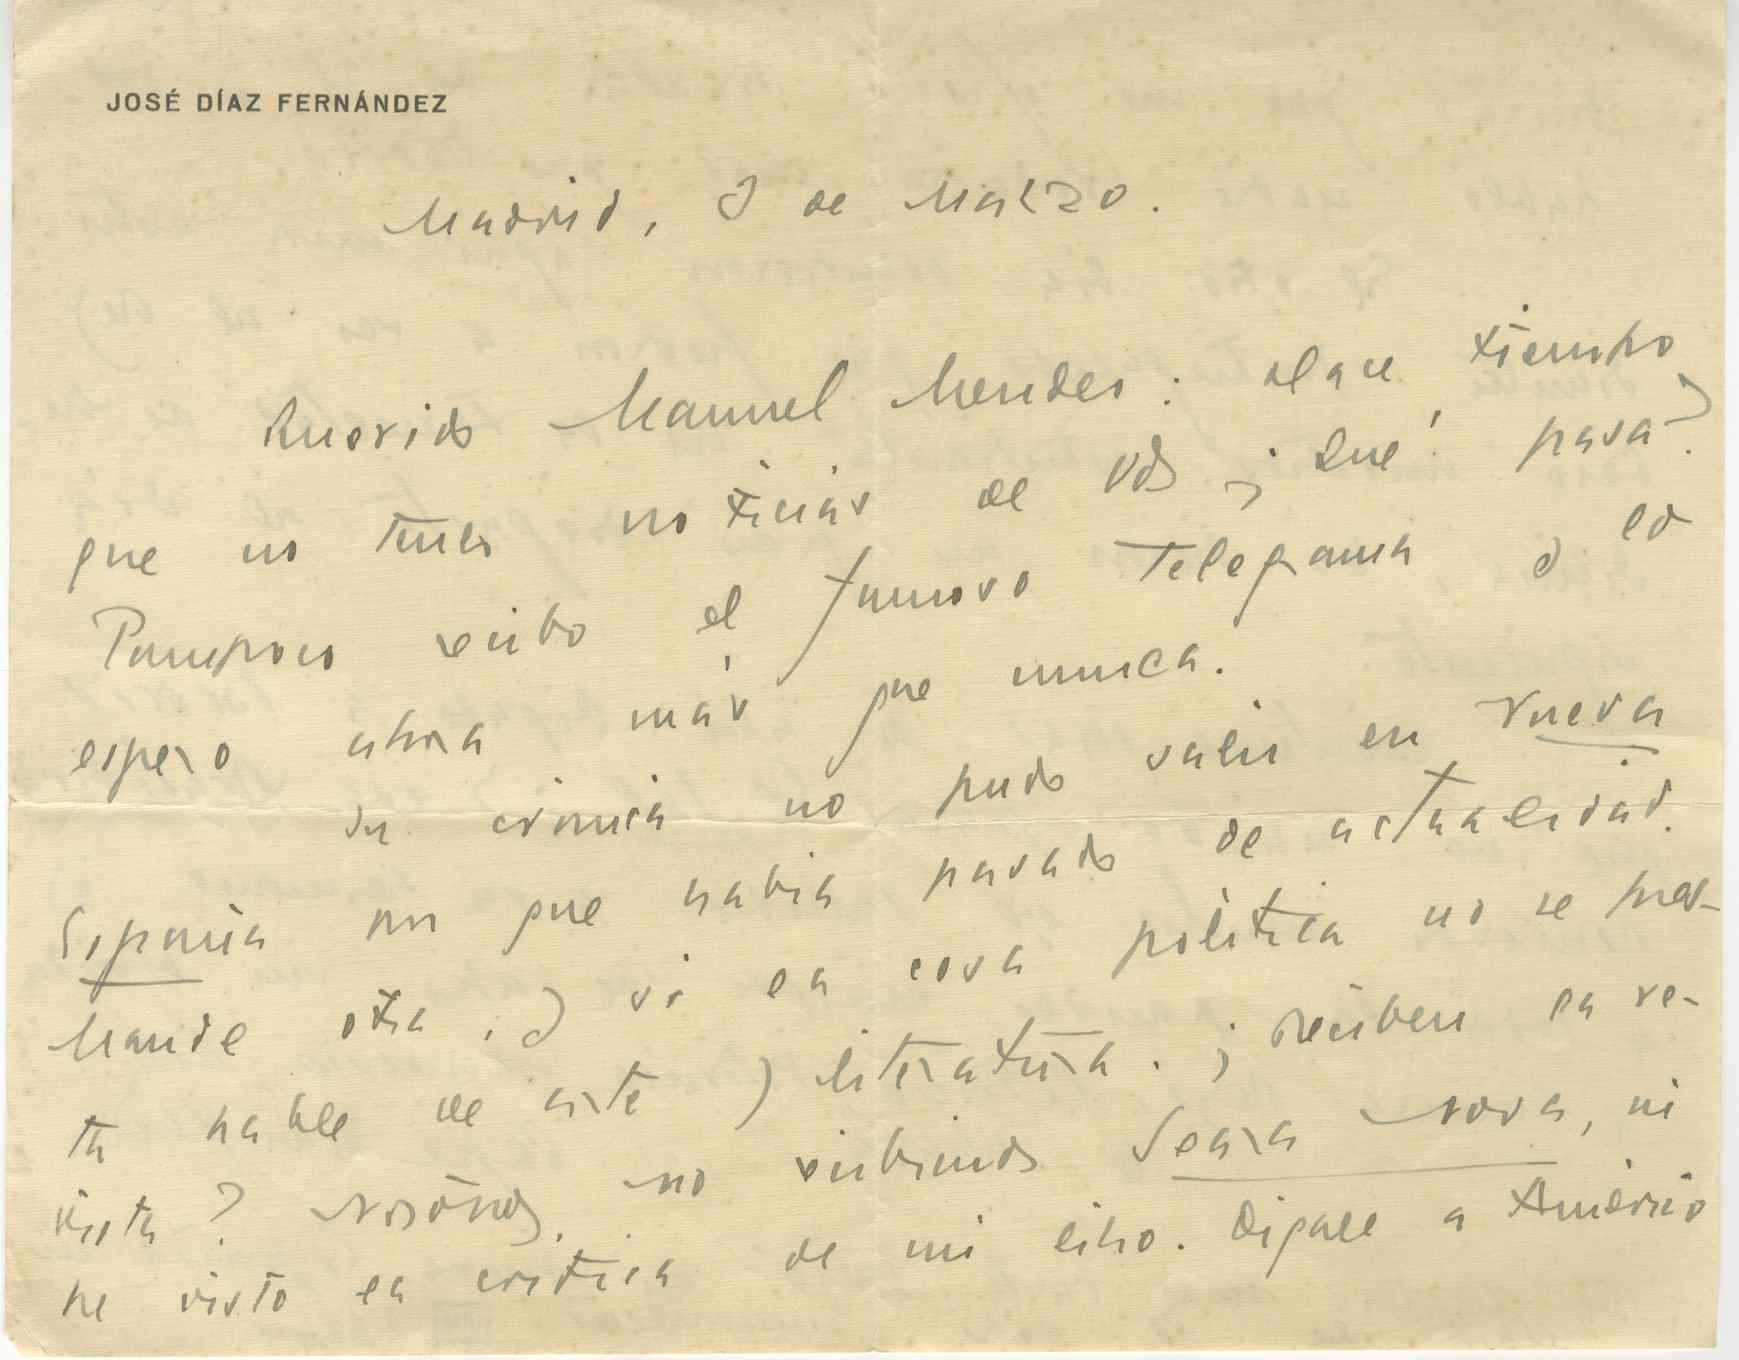 JOSÉ DÍAZ FERNÁNDEZ
Madrid, 8 de Marzo.
Querido Manuel Mendes: Hace tiempo
que no tuve noticias de Vds ¿Qué pasa?
Tampoco recibo el famoso telegrama y lo
espero ahora más que nunca.
Su crónica no pudo salir en Nueva
España por que había pasado de actualidad.
Mande otra, y si la cosa política no se pres-
ta hable de arte y literatura. ¿Reciben la re-
vista? Nosotros no recibimos Seara Nova, ni
he visto la crítica de mi libro. Digale a Américo